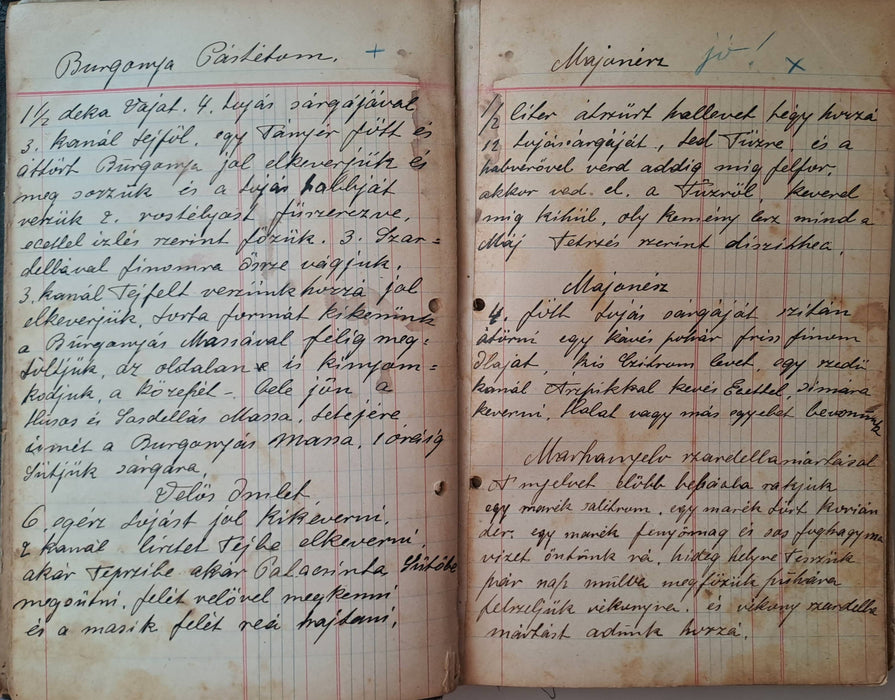 Burgonya Pástétom. +
1 1/2 deka Vajat. 4. tojás sárgájával
3. kanál tejföl. egy Tányér főtt és
áttört Burgonya jol elkeverjük és
meg sozzuk és a tojás habbját
verzük 2. rostélyost füszerezve,
ecettel izlés szerint főzük. 3. Szar=
dellával finomra össze vágjuk.
3. kanál Tejfelt verzünk hozzá jol
elkeverjük, torta formát kikenünk
a Burgonyás Massával félig meg=
töltjük, az oldalán is kinyom=
kodjuk, a közepét - bele jön a
Húsos és Sasdellás Massa. tetejére
ismét a Burgonyás Massa. 1 óráig
Sütjük sárgára.
Velős Omlet.
6. egész tojást jol kikeverni.
2 kanál lisztet Tejbe elkeverni
akár Tepszibe akár Palacsinta Sütőbe
megsütni. felét velővel megkenni
és a masik felét reá hajtani.
Majonész jó! x
1/2 liter átszürt hallevet tégy hozzá
12 tojássárgáját, ted Tüzre és a
habverővel verd addig mig felfor,
akkor ved el. a Tüzről, keverd
mig kihül, oly kemény lesz mind a
Máj Tetszés szerint diszithea,
Majonész
4. főtt tojás sárgáját szitán
átörni egy kávés pohár friss finom
Olajat, kis Czitrom levet, egy
kanál Aszpikkal kevés Ecettel, simára
keverni. Halat vagy más egyebet bevonunk
Marhanyelv szardellamártással
A nyelvet előbb rakjuk
egy marék salitrom, egy marék tört korián
der. egy marék fenyőmag és sos foghagyma
vizet öntünk rá, hideg helyre Teszük
pár nap mulva megfőzük puhára
felszeljük vékonyra. és vékony szardella
mártást adunk hozzá.